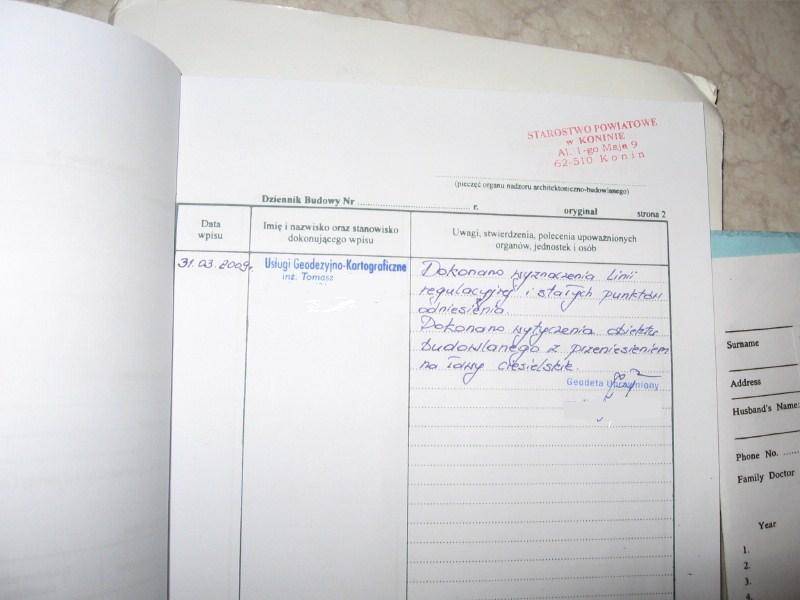 STAROSTWO POWIATOWE
w KONINIE
Al. 1-go Maja 9
62-510 Konin
(pieczęć organu nadzoru architektoniczno-budowlanego)
Dziennik Budowy Nr ........ r. oryginał strona 2
Data wpisu
Imię i nazwisko oraz stanowisko dokonującego wpisu
Uwagi, stwierdzenia, polecenia upoważnionych organów, jednostek i osób
31.03.2009r.
Usługi Geodezyjno-Kartograficzne
inż. Tomasz
Dokonano wyznaczenia linii
regulacyjnej i stałych punktów
odniesienia.
Dokonano wytyczenia obiektu
budowlanego z przeniesieniem
na ławy ciesielskie.
Geodeta Uprawniony
Surname
Address
Husband's Name:
Phone No. ......
Family Doctor
Year
1.
2.
3.
4.